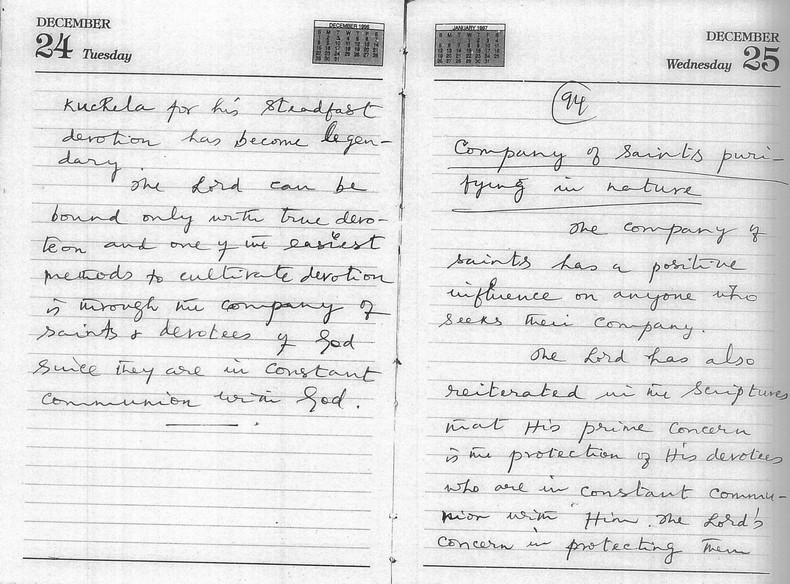 DECEMBER
24 Tuesday
DECEMBER 1996
Kuchela for his steadfast
devotion has become legen-
dary.
The Lord can be
bound only with true devo-
tion and one of the easiest
methods to cultivate devotion
is through the company of
saints & devotees of God
since they are in constant
communion with God.
JANUARY 1997
DECEMBER
Wednesday 25
94
Company of saints puri-
fying in nature
The company of
saints has a positive
influence on anyone who
seeks their company.
The Lord has also
reiterated in the scriptures
that His prime concern
is the protection of His devotees
who are in constant commu-
nion with Him. The Lord's
concern in protecting them